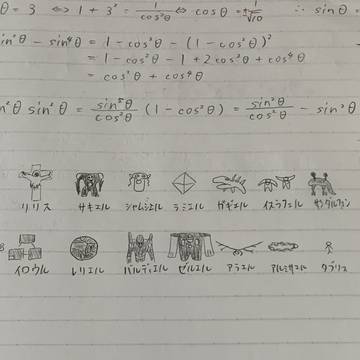 θ = 3 ⇔ 1 + 3² = 1/cos²θ ⇔ cosθ = ±1/√10 ∴ sinθ =
sin²θ − sin⁴θ = 1 − cos²θ − (1 − cos²θ)²
= 1 − cos²θ − 1 + 2cos²θ + cos⁴θ
= cos²θ + cos⁴θ
sin²θ = sin²θ/cos²θ (1 − cos²θ) = sin²θ/cos²θ − sin²θ
リリス サキエル シャムシエル ラミエル ガギエル イスラフェル サンダルフォン
イロウル レリエル バルディエル ゼルエル アラエル アルミサエル タブリス